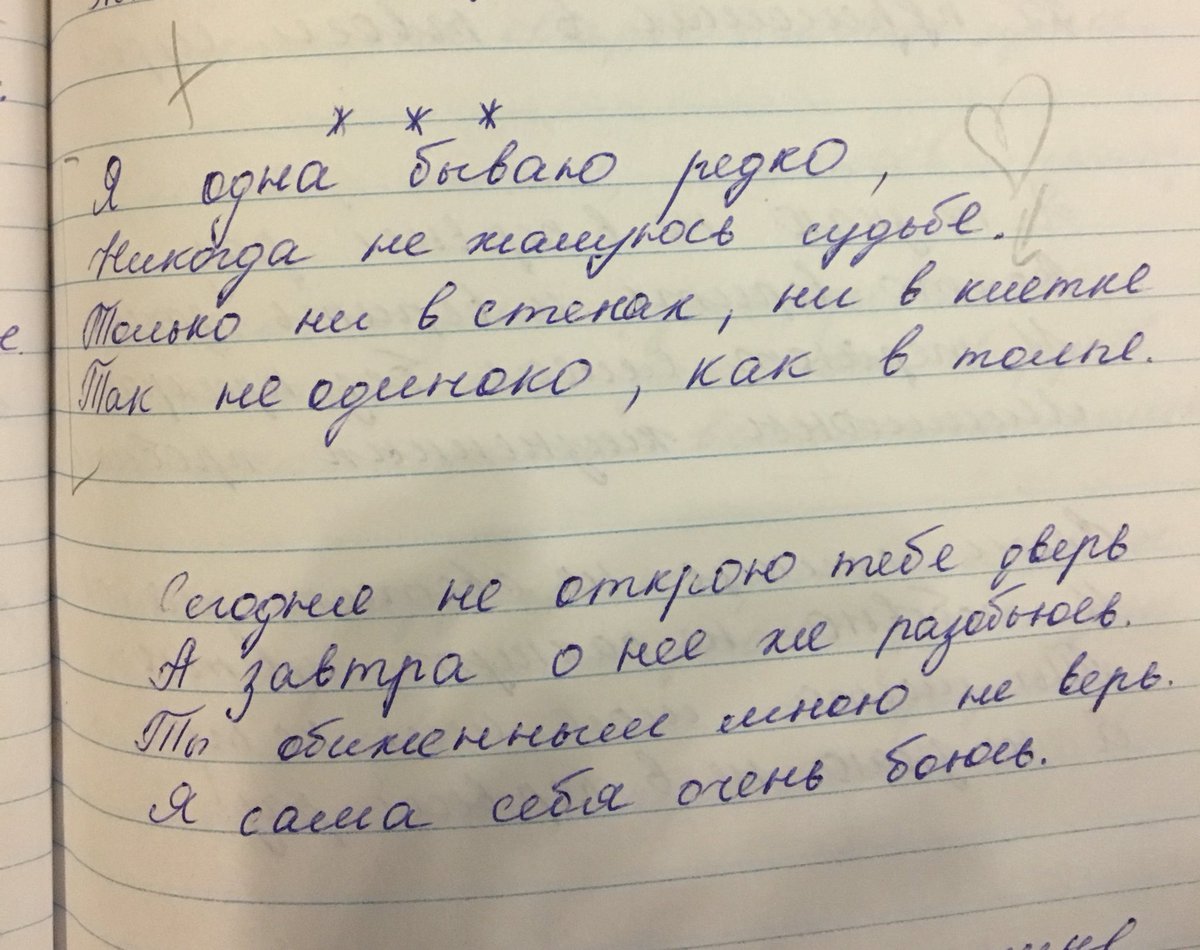 * * *
Я одна бываю редко,
Никогда не жалуюсь судьбе.
Только ни в стенах, ни в клетке
Так не одиноко, как в толпе.
Сегодня не открою тебе дверь
А завтра о нее же разобьюсь.
Ты обиженным мною не верь.
Я сама себя очень боюсь.